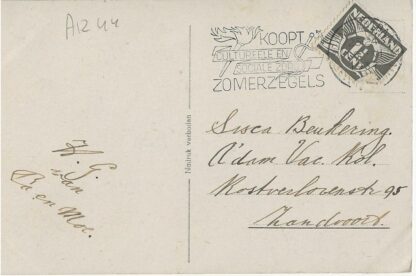 A1244
KOOPT
CULTUREELE EN
SOCIALE
ZOMERZEGELS
NEDERLAND
CENT
Nadruk verboden
H. G.
van
Pa en Moe.
Sisca Beukering.
A'dam Vac. Kol.
Kostverlorenstr 95
Zandvoort.